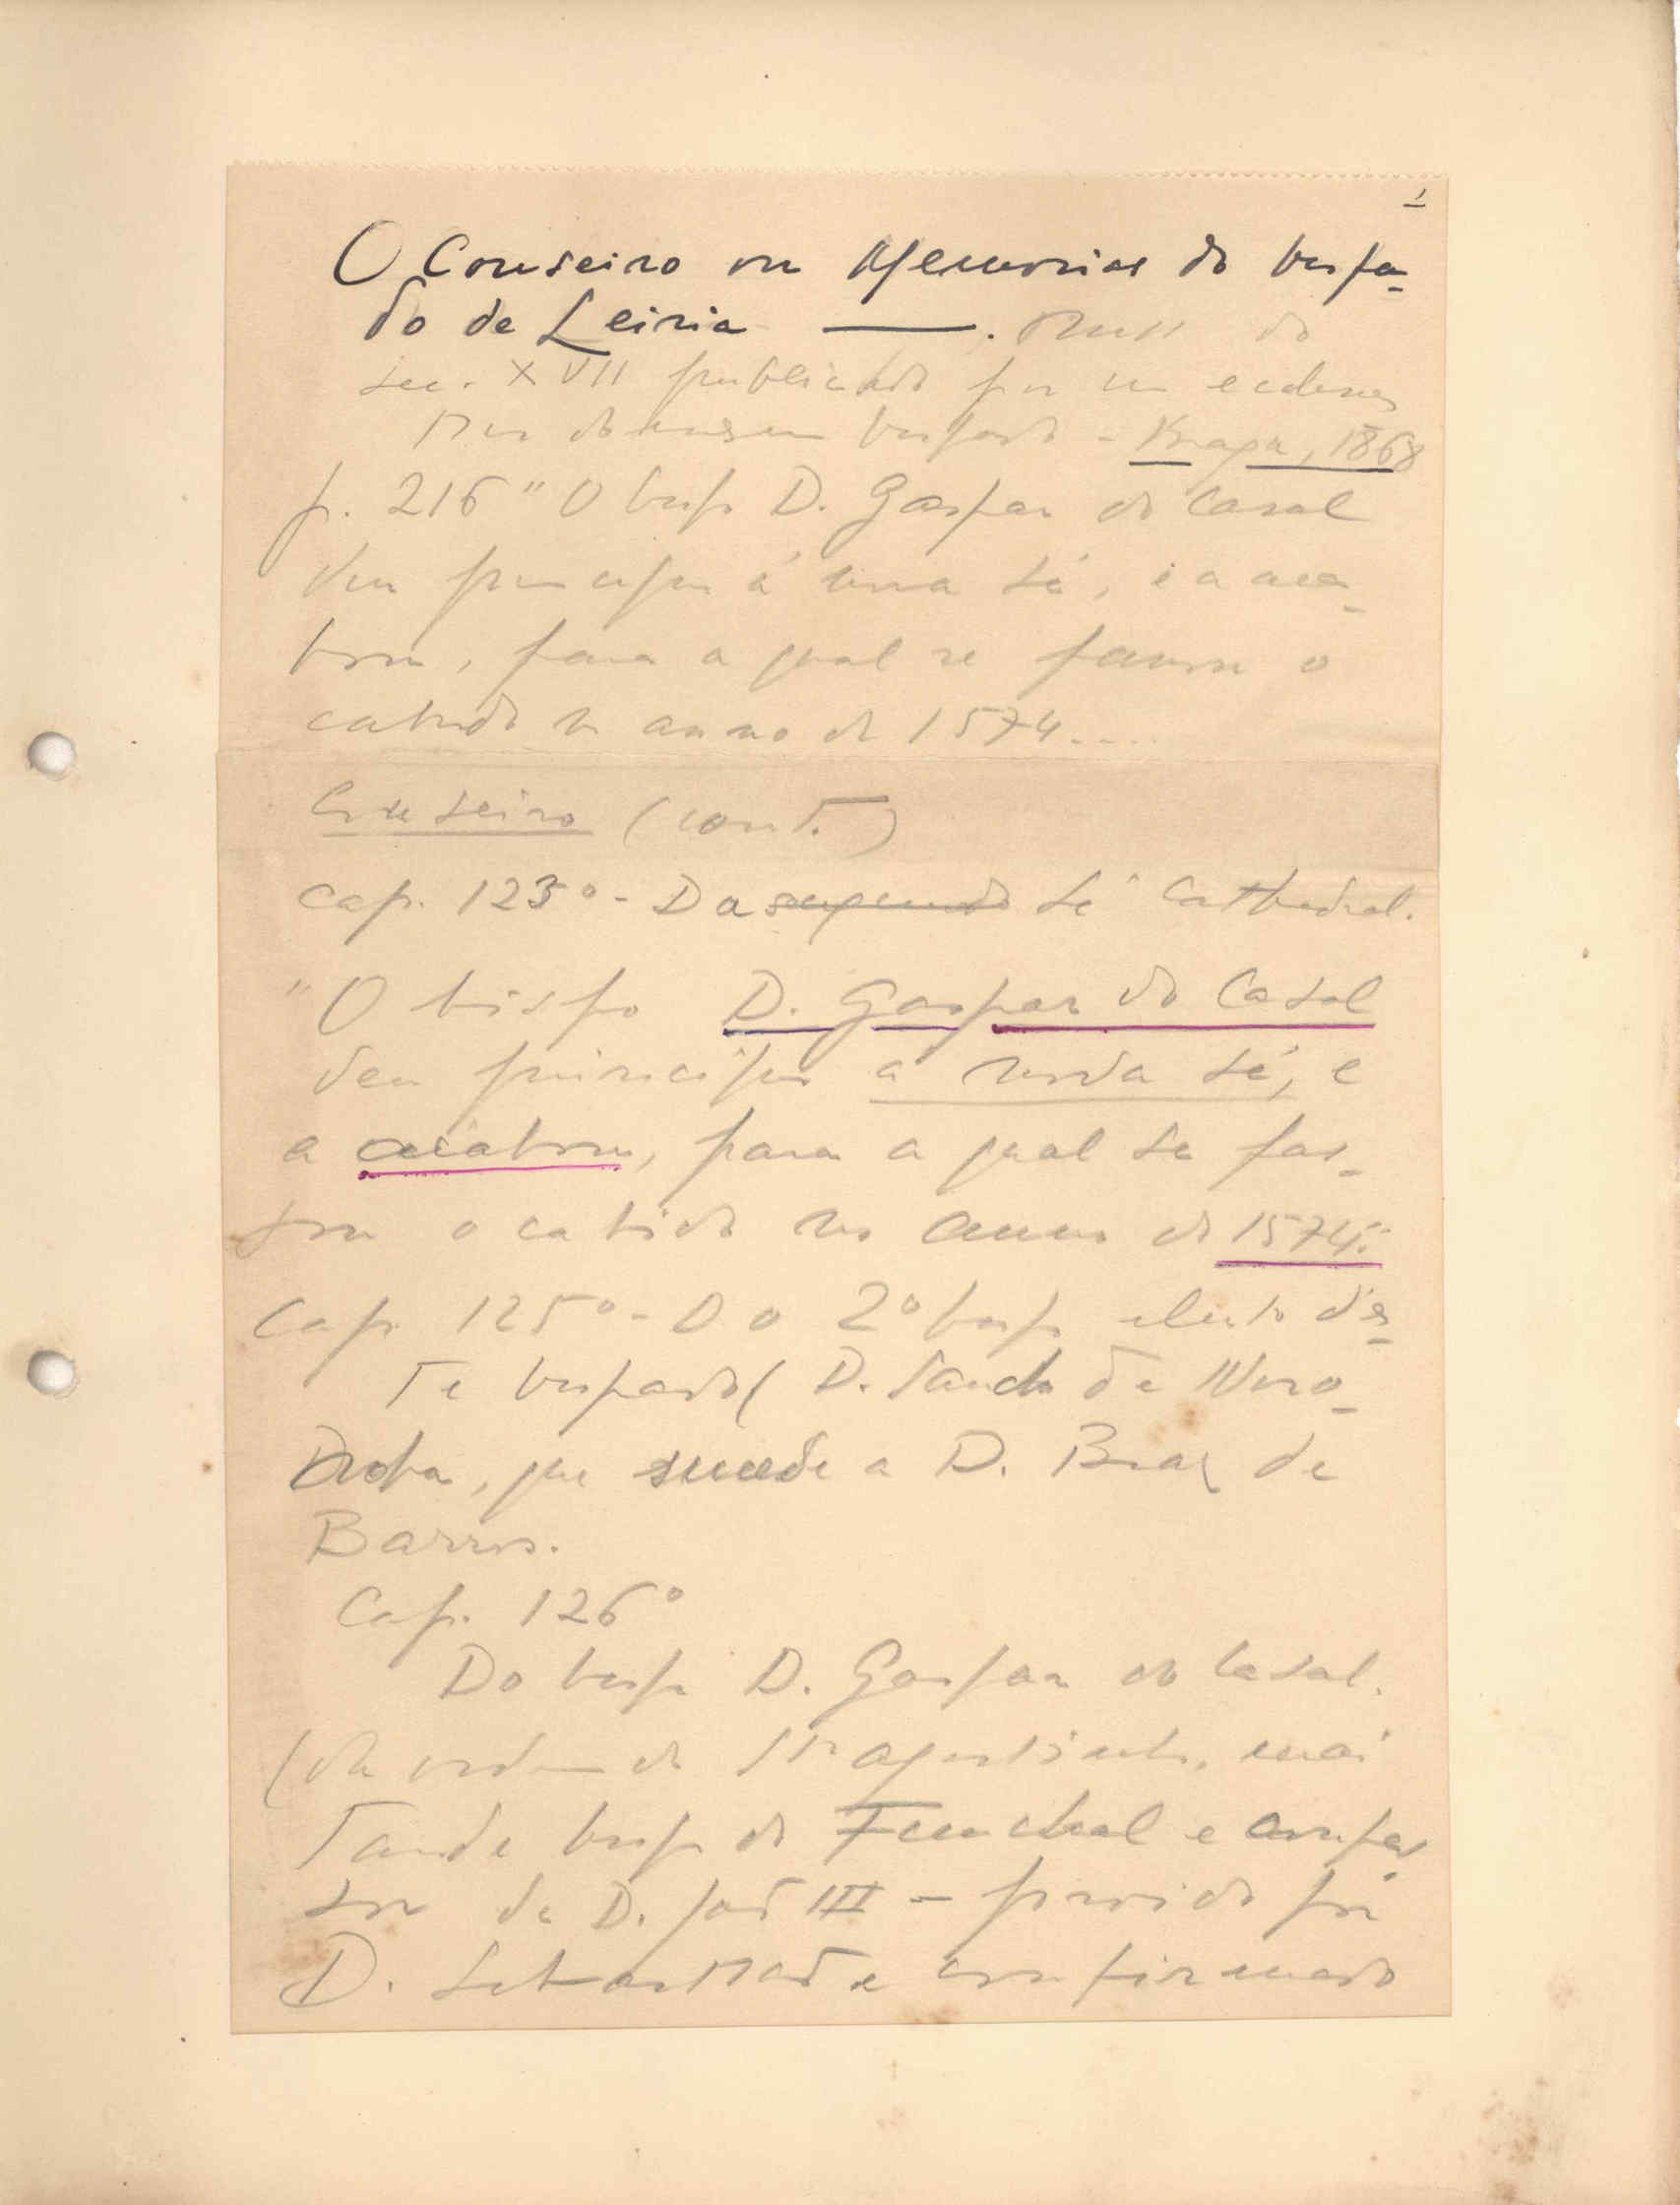 1
O Couseiro ou Memorias do bispa-
do de Leiria ———. Mss do
sec. XVII publicado por un ecclesias
tico do mesmo bispado - Braga, 1868
p. 216 "O bispo D. Gaspar do Casal
deu principio á nova Sé, e a aca-
bou, para a qual se passou o
cabido no anno de 1574....
Couseiro (cont.)
Cap. 123º - Da Sé Cathedral.
"O bispo D. Gaspar do Casal
deu principio á nova Sé, e
a acabou, para a qual se pas-
sou o cabido no anno de 1574."
Cap. 125º - Do 2º bispo eleito d'es-
te bispado (D. Sancho de Noro-
nha, que succede a D. Braz de
Barros.
Cap. 126º
Do bispo D. Gaspar do Casal.
(da ordem de Stº Agostinho, mais
tarde bispo do Funchal e confes-
sor de D. João III - provido por
D. Sebastião e confirmado